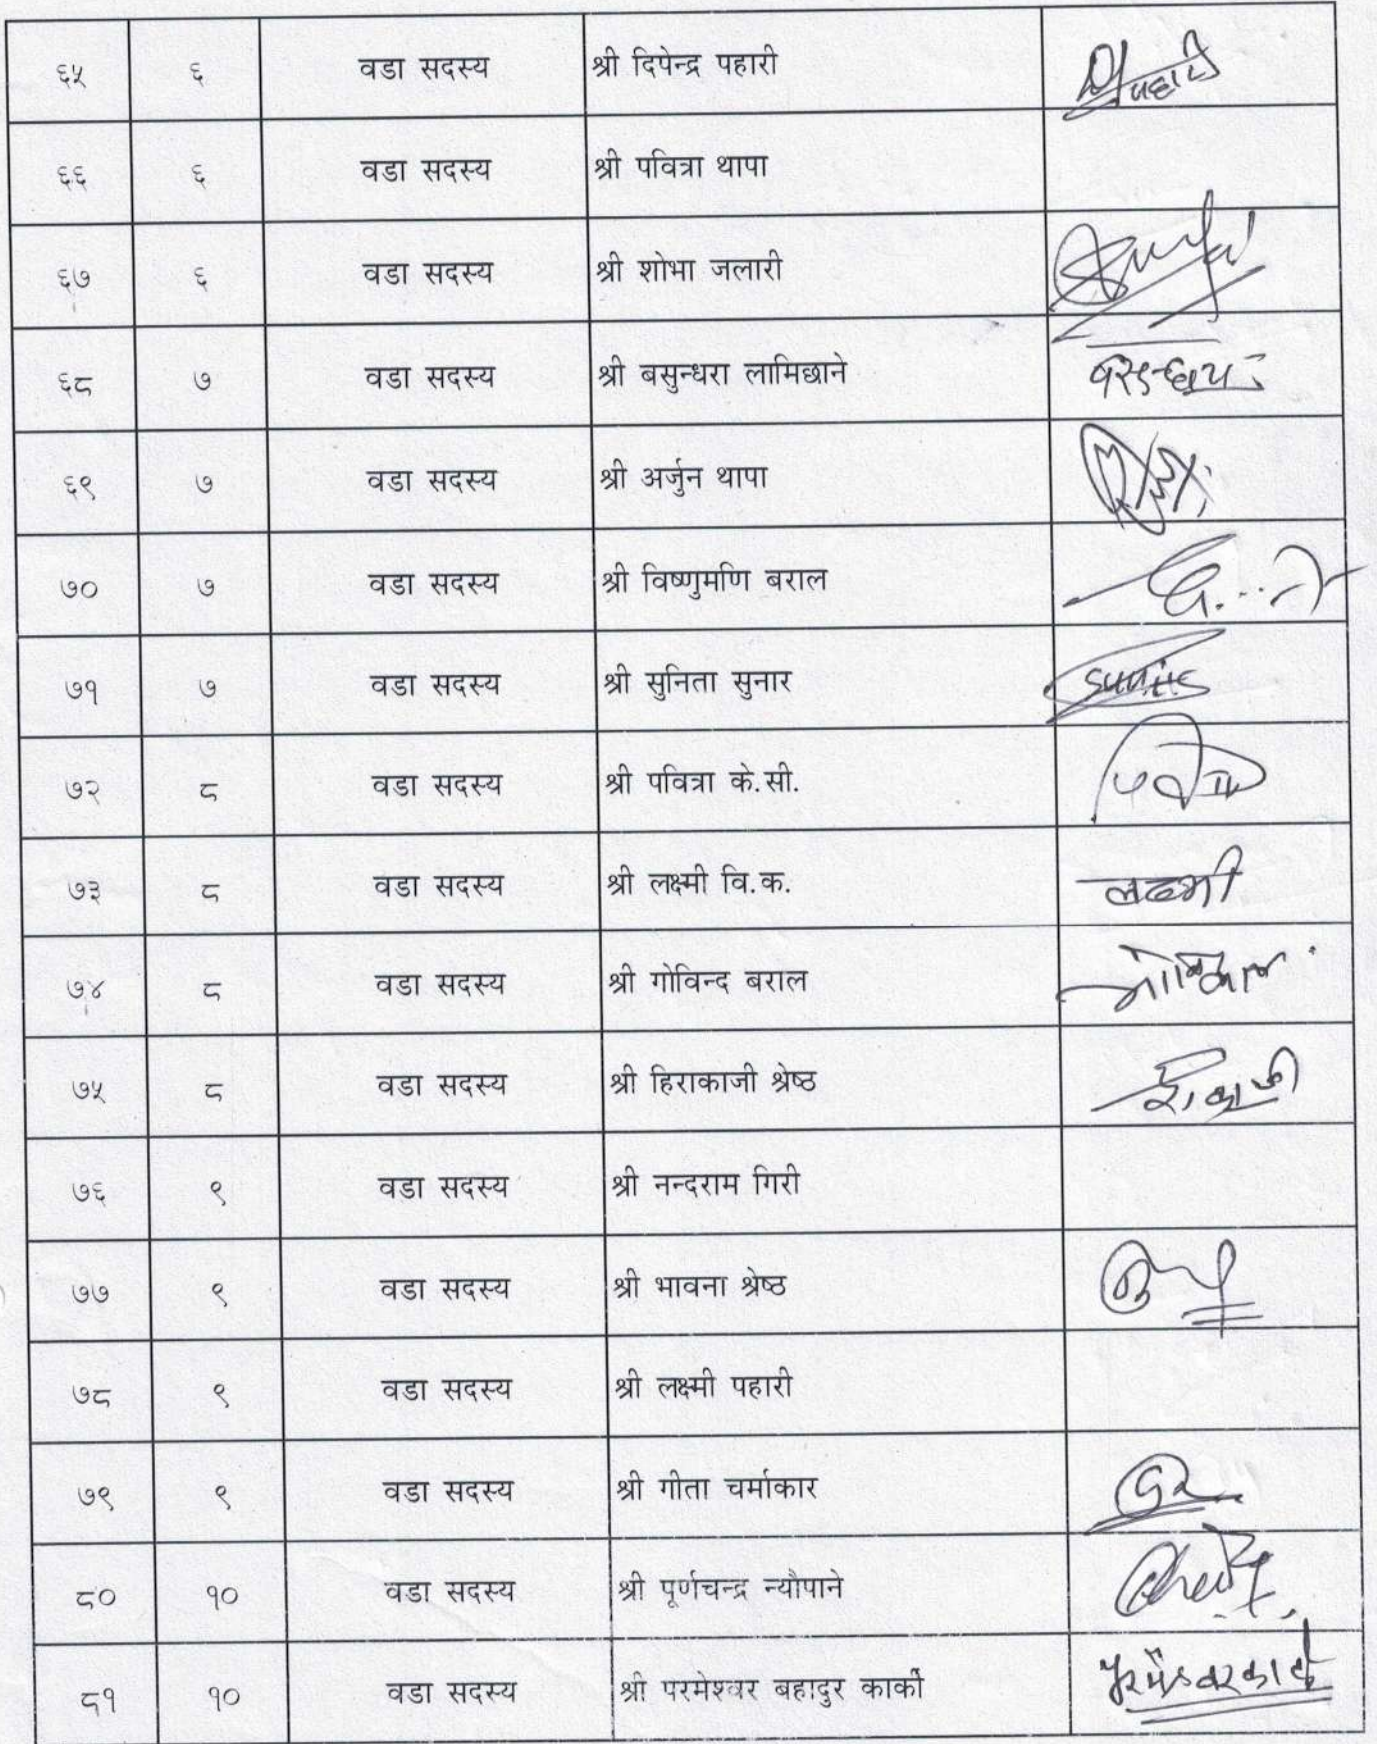 ६५ ६ वडा सदस्य श्री दिपेन्द्र पहारी पहारी
६६ ६ वडा सदस्य श्री पवित्रा थापा
६७ ६ वडा सदस्य श्री शोभा जलारी
६८ ७ वडा सदस्य श्री बसुन्धरा लामिछाने
६९ ७ वडा सदस्य श्री अर्जुन थापा
७० ७ वडा सदस्य श्री विष्णुमणि बराल
७१ ७ वडा सदस्य श्री सुनिता सुनार
७२ ८ वडा सदस्य श्री पवित्रा के.सी.
७३ ८ वडा सदस्य श्री लक्ष्मी वि.क. लक्ष्मी
७४ ८ वडा सदस्य श्री गोविन्द बराल
७५ ८ वडा सदस्य श्री हिराकाजी श्रेष्ठ
७६ ९ वडा सदस्य श्री नन्दराम गिरी
७७ ९ वडा सदस्य श्री भावना श्रेष्ठ
७८ ९ वडा सदस्य श्री लक्ष्मी पहारी
७९ ९ वडा सदस्य श्री गीता चर्माकार
८० १० वडा सदस्य श्री पूर्णचन्द्र न्यौपाने
८१ १० वडा सदस्य श्री परमेश्वर बहादुर कार्की